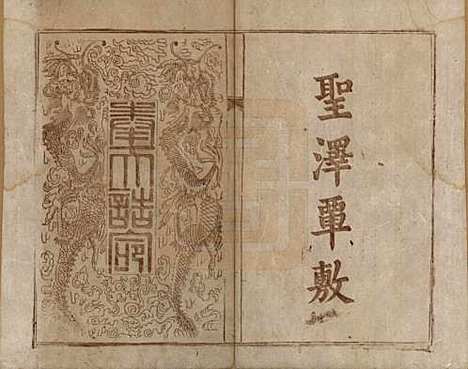 聖澤覃敷
奉天誥命